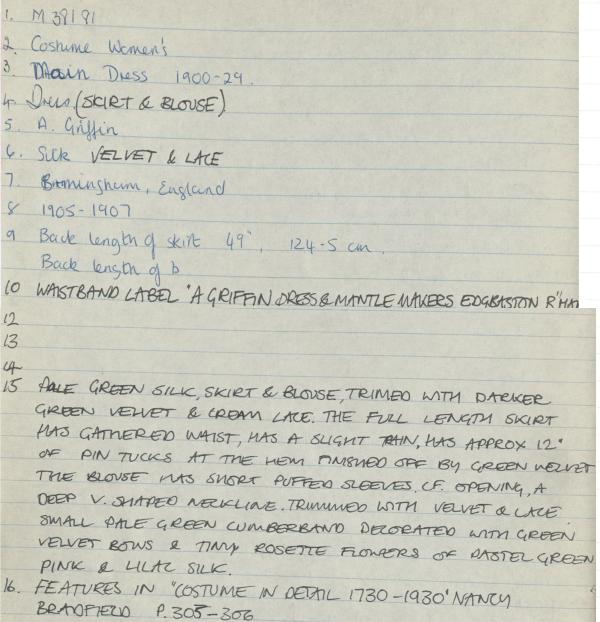 1. M 39191
2. Costume Women's
3. Main Dress 1900-29.
4. Dress (SKIRT & BLOUSE)
5. A. Griffin
6. Silk VELVET & LACE
7. Birmingham, England
8 1905-1907
9 Back length of skirt 49", 124-5 cm.
Back length of b
10 WAISTBAND LABEL 'A GRIFFIN DRESS & MANTLE MAKERS EDGBASTON
12
13
14
15 PALE GREEN SILK, SKIRT & BLOUSE, TRIMED WITH DARKER
GREEN VELVET & CREAM LACE. THE FULL LENGTH SKIRT
HAS GATHERED WAIST, HAS A SLIGHT TRAIN, HAS APPROX 12"
OF PIN TUCKS AT THE HEM FINISHED OFF BY GREEN VELVET
THE BLOUSE HAS SHORT PUFFED SLEEVES. CF. OPENING, A
DEEP V. SHAPED NECKLINE. TRIMMED WITH VELVET & LACE
SMALL PALE GREEN CUMBERBAND DECORATED WITH GREEN
VELVET BOWS & TINY ROSETTE FLOWERS OF PASTEL GREEN
PINK & LILAC SILK.
16. FEATURES IN "COSTUME IN DETAIL 1730-1930' NANCY
BRADFIELD P.305-306